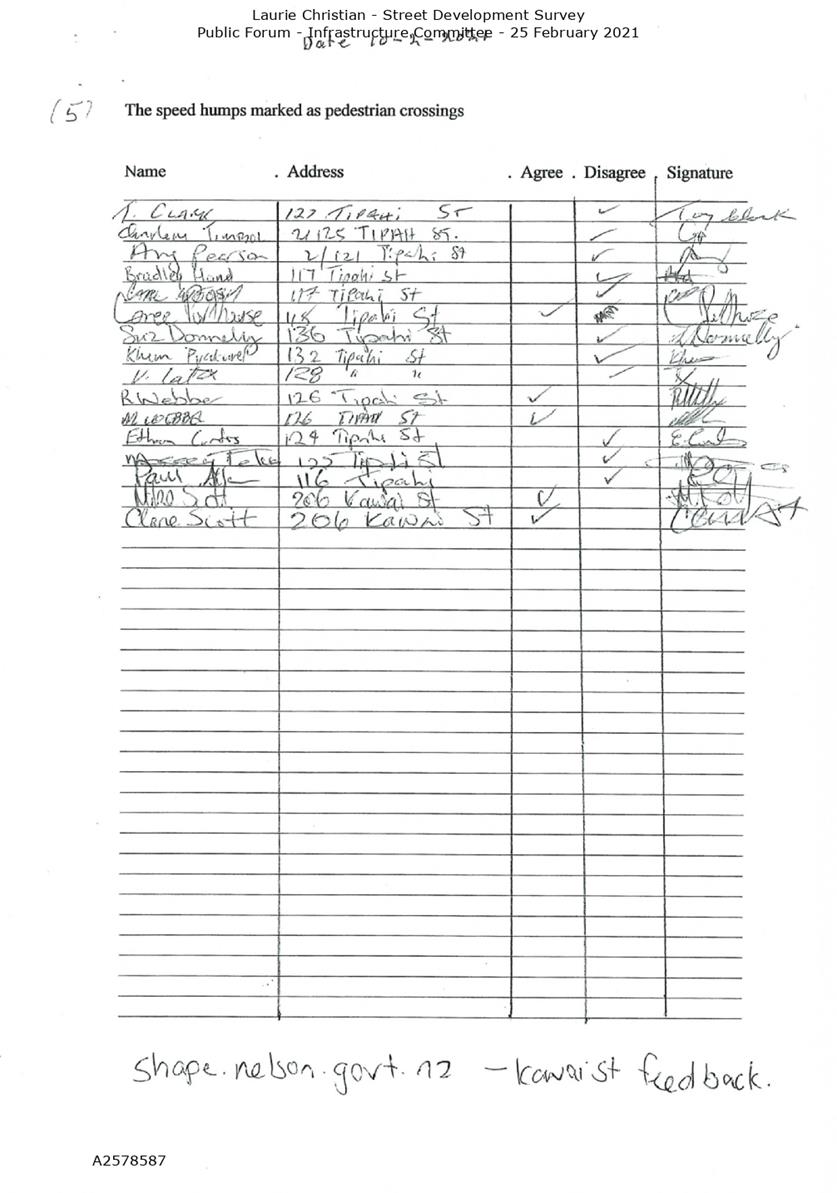 Laurie Christian - Street Development Survey
Public Forum - Infrastructure Committee - 25 February 2021
Date 10-2-2021
(5) The speed humps marked as pedestrian crossings
Name . Address . Agree . Disagree . Signature
T. CLARK 127 TIPAHI ST ✓ Tony Clark
2/125 TIPAHI ST. ✓
Amy Pearson 2/121 Tipahi St ✓
Bradley Hand 117 Tipahi St ✓
117 TIPAHI ST ✓
118 Tipahi St ✓
Suz Donnelly 136 Tipahi St ✓ S Donnelly
Khem 132 Tipahi St ✓ Khem
V. 128 " " ✓
R Webber 126 Tipahi St ✓
M WEBBER 126 TIPAHI ST ✓
Ethan 124 Tipahi St ✓
Tipahi St ✓
Paul 116 Tipahi ✓
Scott 206 Kawai St ✓
Clare Scott 206 Kawai St ✓
shape.nelson.govt.nz - Kawai st feedback.
A2578587